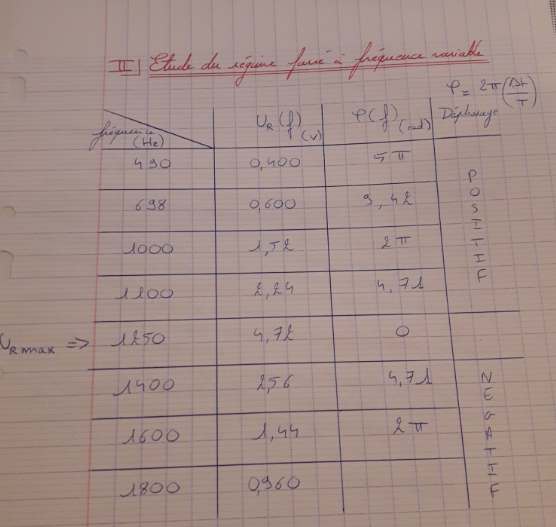 II) Etude du régime forcé à fréquence variable
φ = 2π(Δt/T)
fréquence (Hz) UR(f) (V) φ(f) (rad) Déphasage
490 0,400 5π
698 0,600 9,42
1000 1,52 2π
1200 2,24 4,71
POSITIF
UR max => 1250 4,72 0
1400 2,56 4,71
1600 1,44 2π
1800 0,960
NEGATIF